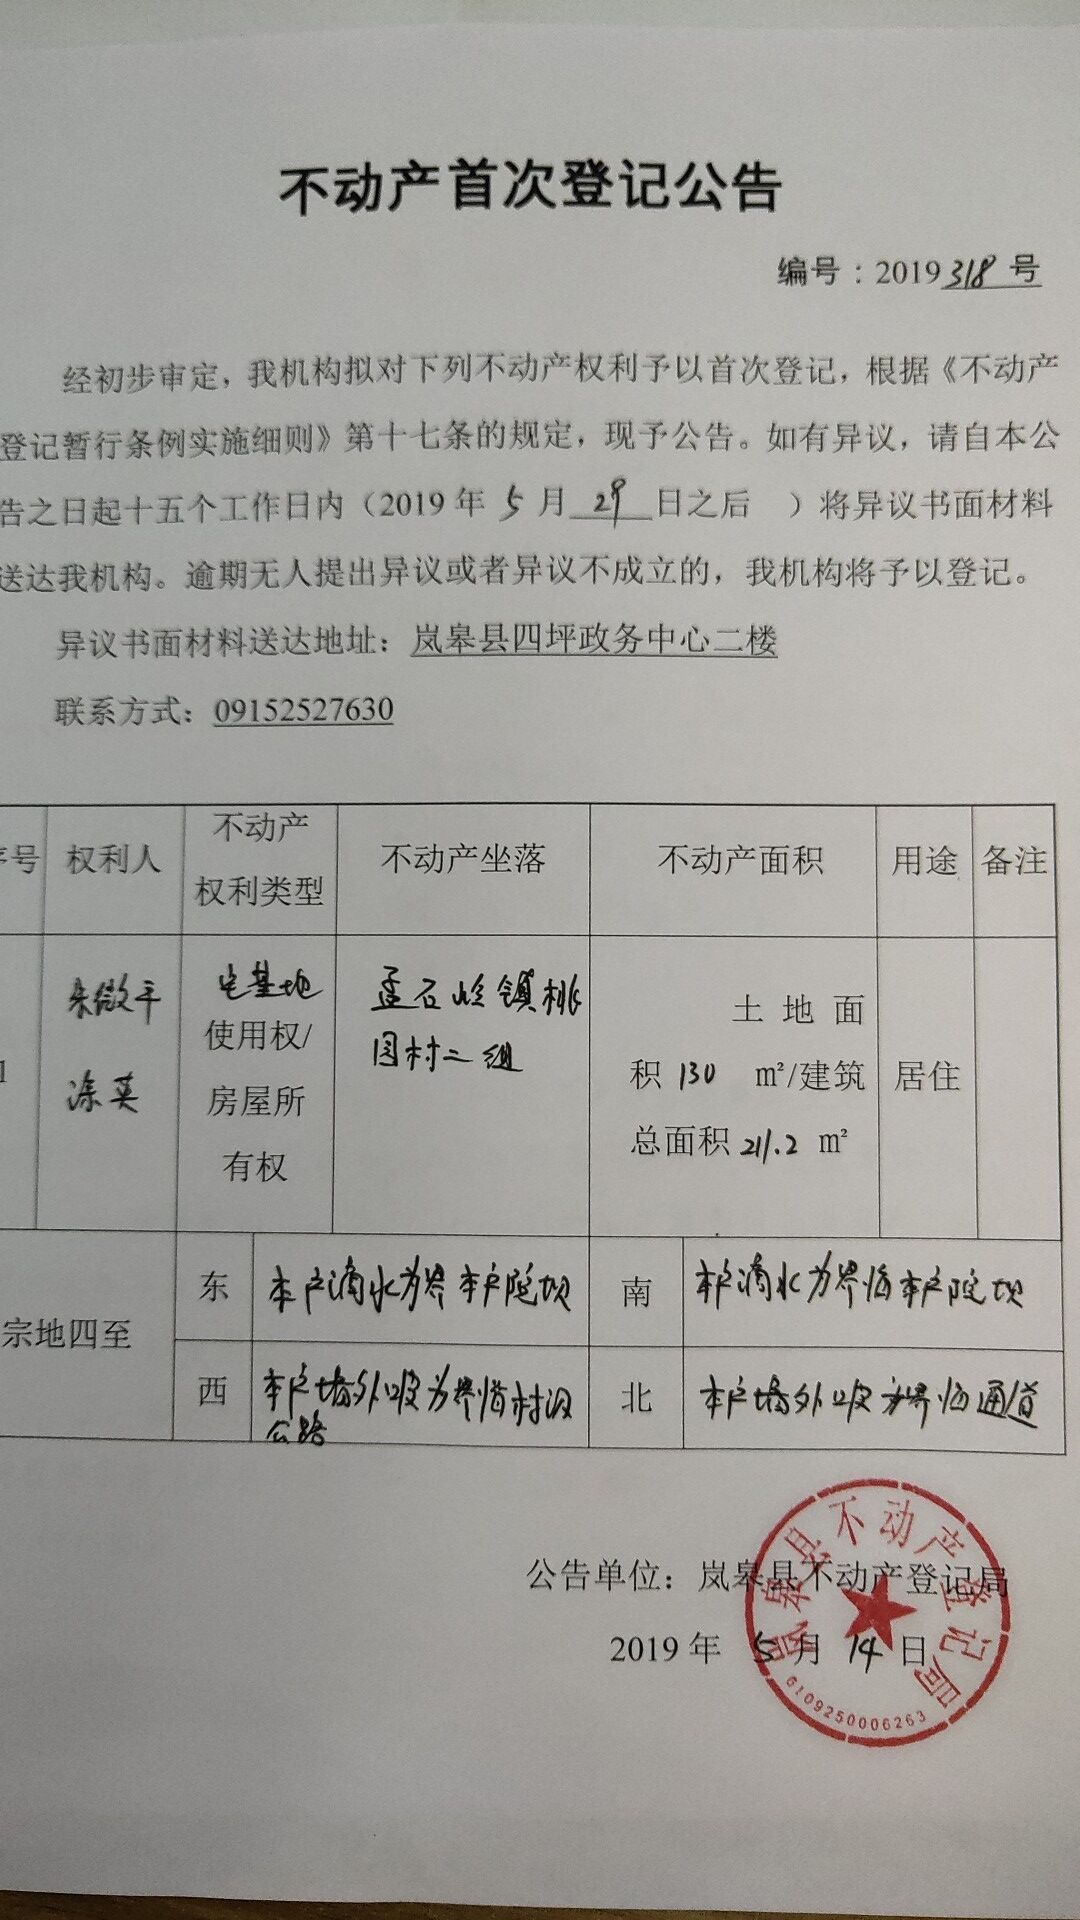 不动产首次登记公告
编号：2019318号
经初步审定，我机构拟对下列不动产权利予以首次登记，根据《不动产
登记暂行条例实施细则》第十七条的规定，现予公告。如有异议，请自本公
告之日起十五个工作日内（2019年5月29日之后 ）将异议书面材料
送达我机构。逾期无人提出异议或者异议不成立的，我机构将予以登记。
异议书面材料送达地址：岚皋县四坪政务中心二楼
联系方式：09152527630
序号 权利人 不动产 权利类型 不动产坐落 不动产面积 用途 备注
1
朱微平
涂英
宅基地
使用权/
房屋所
有权
孟石岭镇桃
园村二组
土地面
积130 m²/建筑
总面积211.2 m²
居住
宗地四至
东 本户滴水为界本户院坝
南 本户滴水为界临本户院坝
西 本户墙外皮为界临村级
公路
北 本户墙外皮为界临通道
公告单位：岚皋县不动产登记局
2019年5月14日
岚皋县不动产登记局
6109250006263